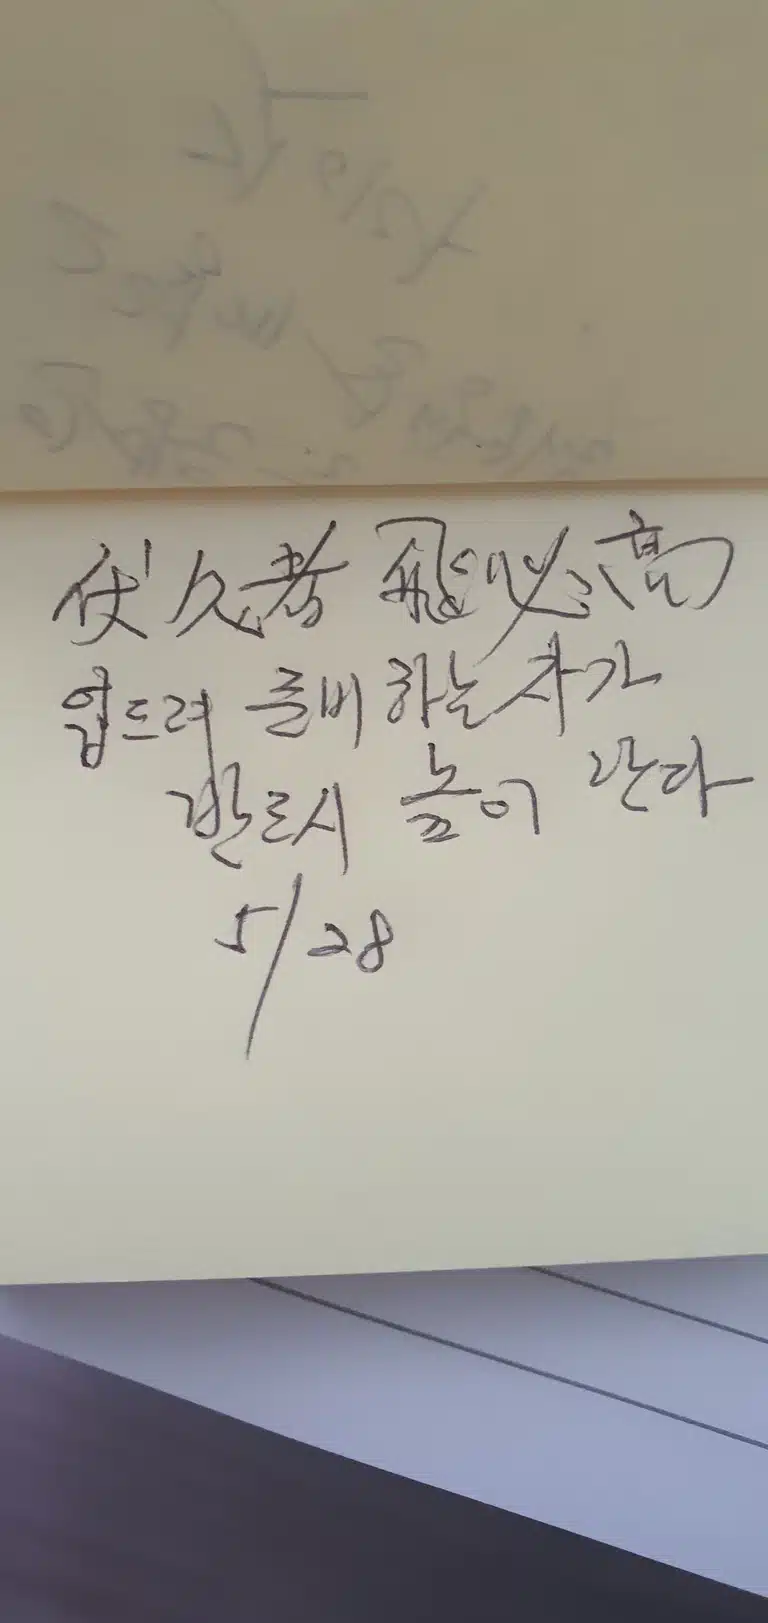 伏久者 飛必高
엎드려 준비하는 자가
반드시 높이 난다
5/28